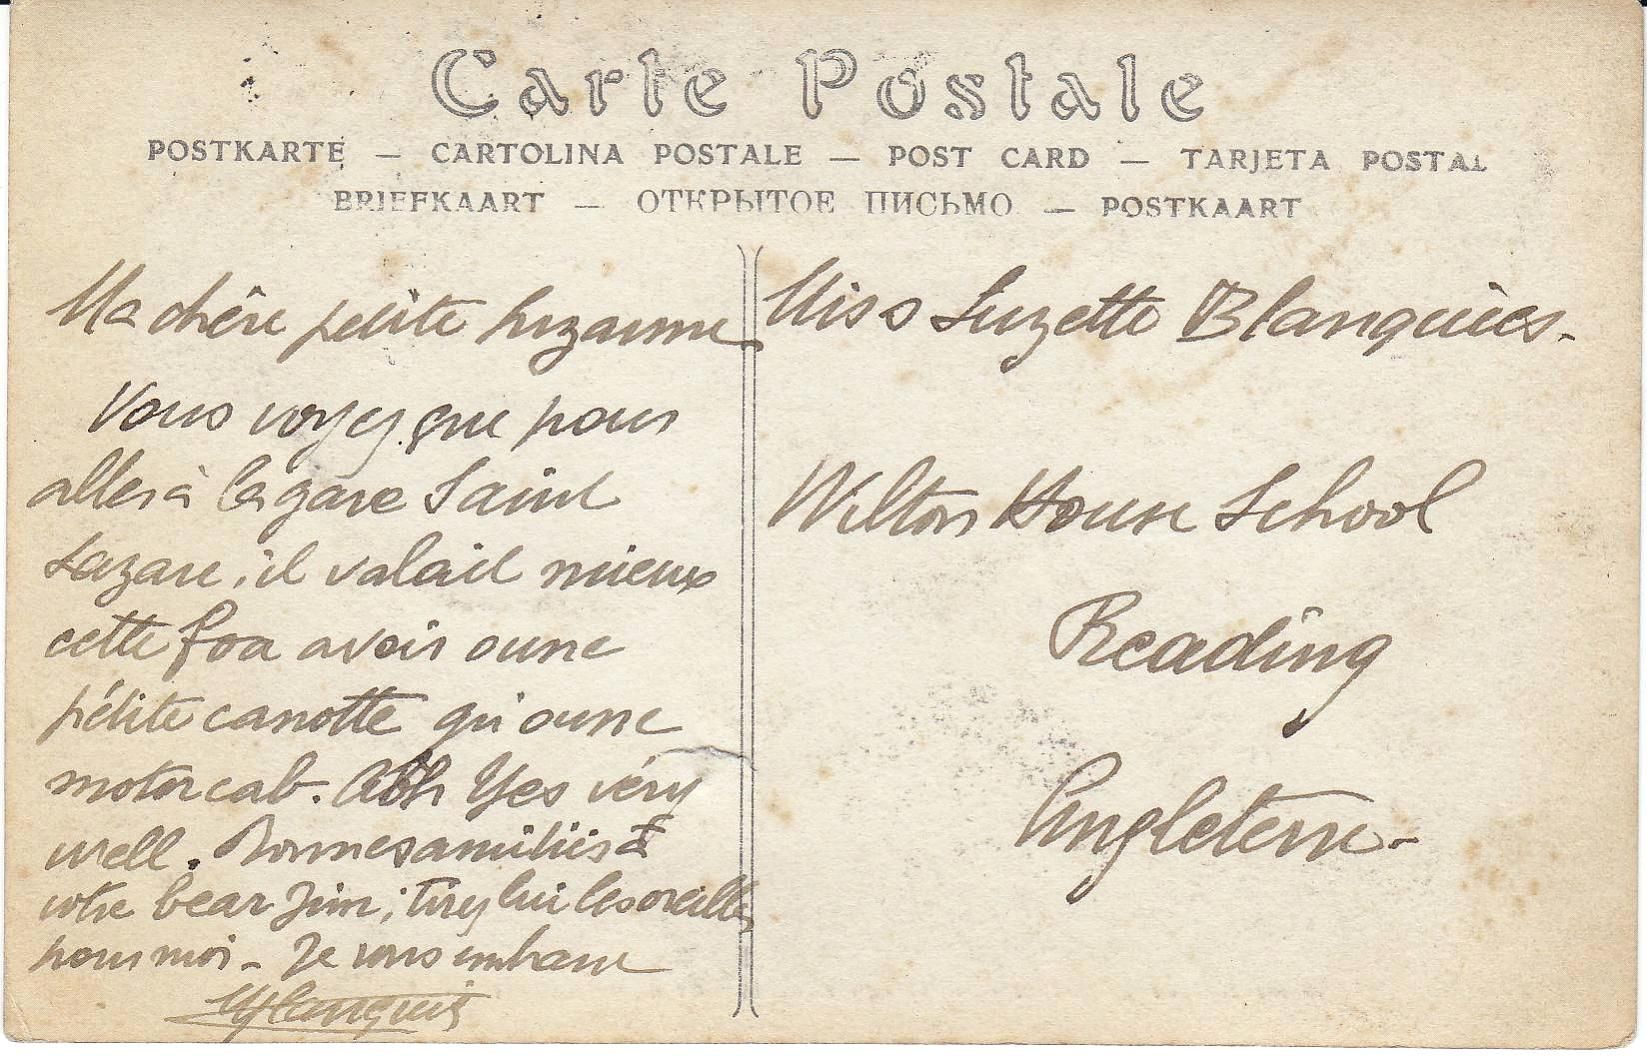 Carte Postale
POSTKARTE — CARTOLINA POSTALE — POST CARD — TARJETA POSTAL
BRIEFKAART — ОТКРЫТОЕ ПИСЬМО — POSTKAART
Ma chère petite Suzanne
Vous voyez que pour
aller à la gare Saint
Lazare, il valait mieux
cette foa avoir oune
pétite canotte qu'oune
motor cab. Aôh Yes véry
well. Bonnes amitiés à
votre bear Jim; tirez lui les oreilles
pour moi - Je vous embrasse
Miss Suzette Blanquies.
Wilton House School
Reading
Angleterre -